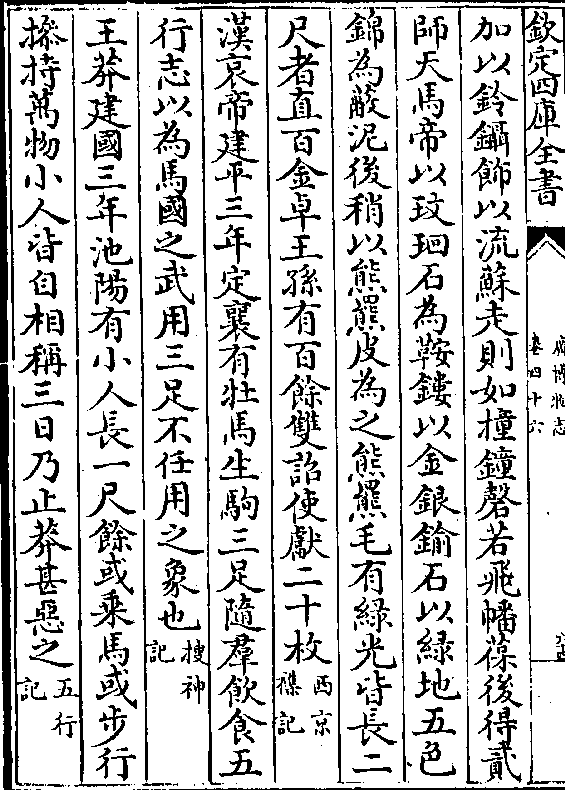 欽定四庫全書
廣博物志
卷四十六
加以鈴鑷飾以流蘇走則如撞鐘磬若飛幡葆後得貳
師天馬帝以玟瑰石為鞍鏤以金銀鍮石以緑地五色
錦為蔽泥後稍以熊羆皮為之熊羆毛有緑光皆長二
尺者直百金卓王孫有百餘雙詔使獻二十枚西京
襍記
漢哀帝建平三年定襄有牡馬生駒三足隨羣飲食五
行志以為馬國之武用三足不任用之象也搜神
記
王莽建國三年池陽有小人長一尺餘或乗馬或步行
操持萬物小人皆自相稱三日乃止莽甚惡之五行
記